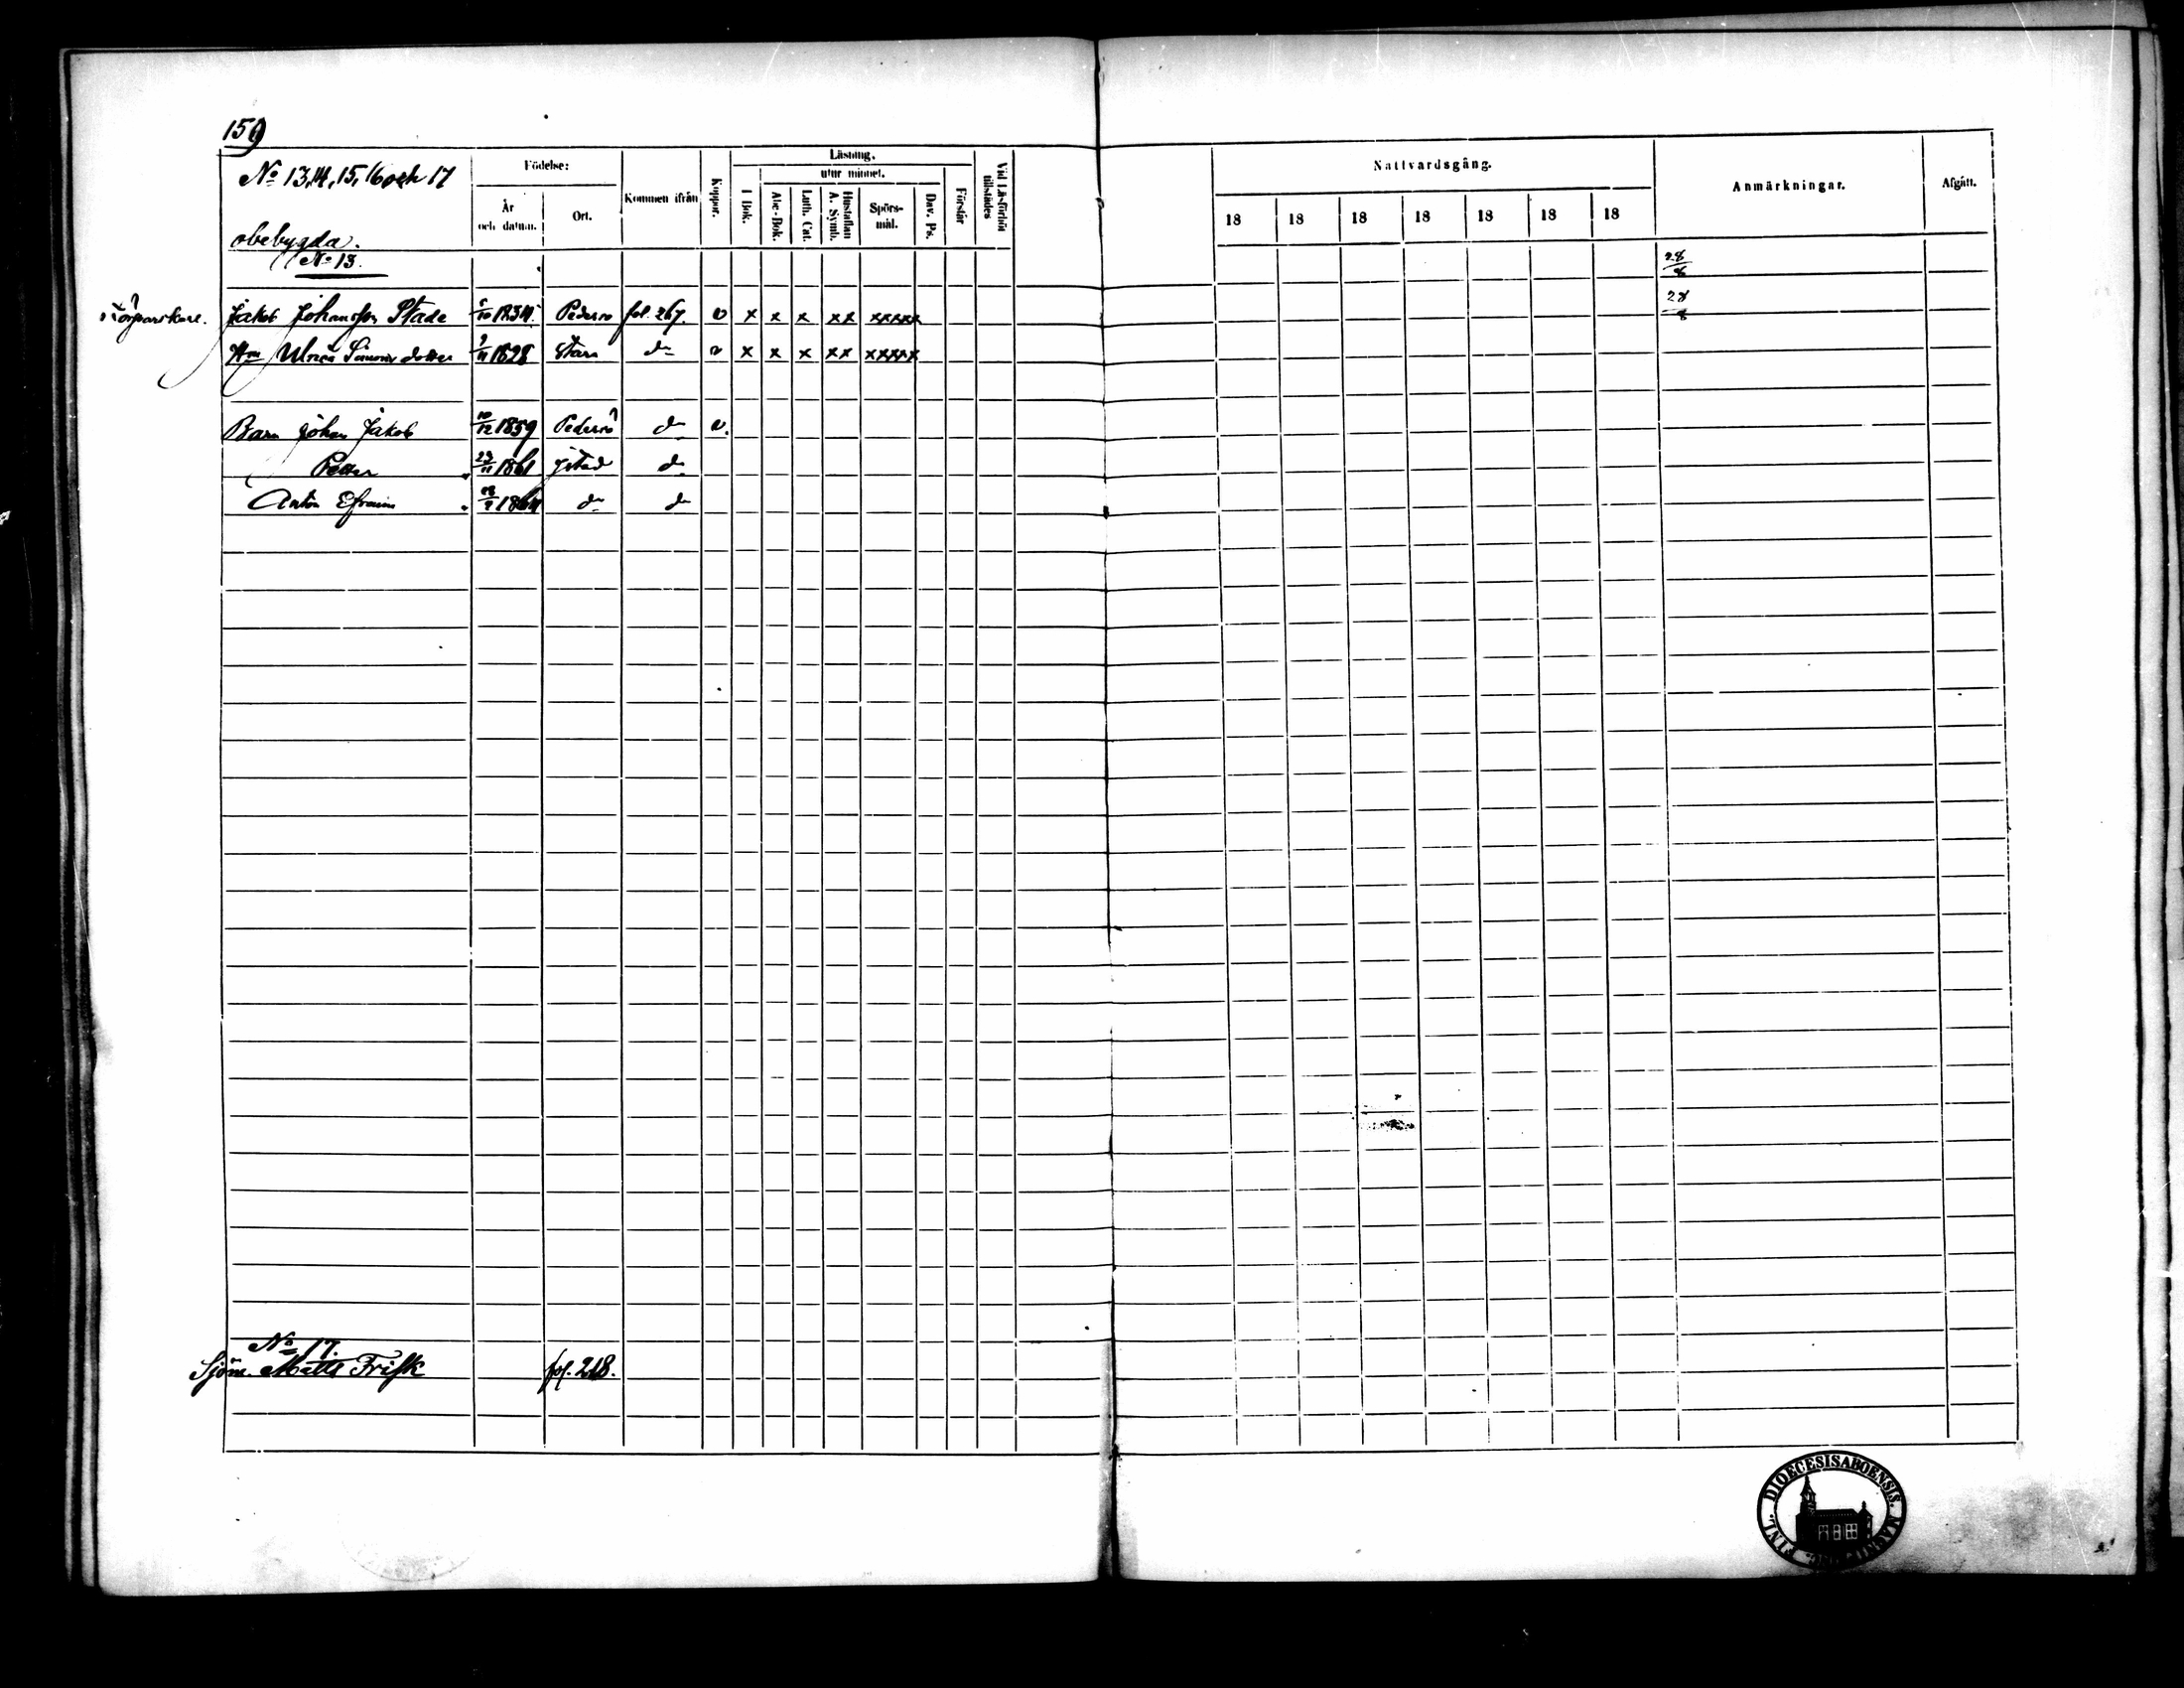 159
No 13, 14, 15, 16 och 17
obebygda.
No 13.
Födelse:
År och datum.
Ort.
Kommen ifrån
Koppor.
Läsning.
I Bok.
utur minnet.
Abc-Bok.
Luth. Cat.
Hustaflan A. Symb.
Spörsmål.
Dav. Ps.
Förstår
Vid Läsförhör tillstädes
Nattvardsgång.
18 18 18 18 18 18 18
Anmärkningar.
Afgått.
28/8
Jakob Johansson Stade 1834 Pedersö fol. 267. v x x x xx xxxxx 28/8
Hm Ulrica Simonsdotter 1828 d- v x x x xx xxxxx
Barn Johan Jakob 10/12 1859 Pedersö d- v.
Petter 23/11 1861 Jstad d-
Anton Efraim 1864 d- d-
No 17.
Sjöm. Matts Frisk fol. 218.
DIOECESIS ABOENSIS. FINL.